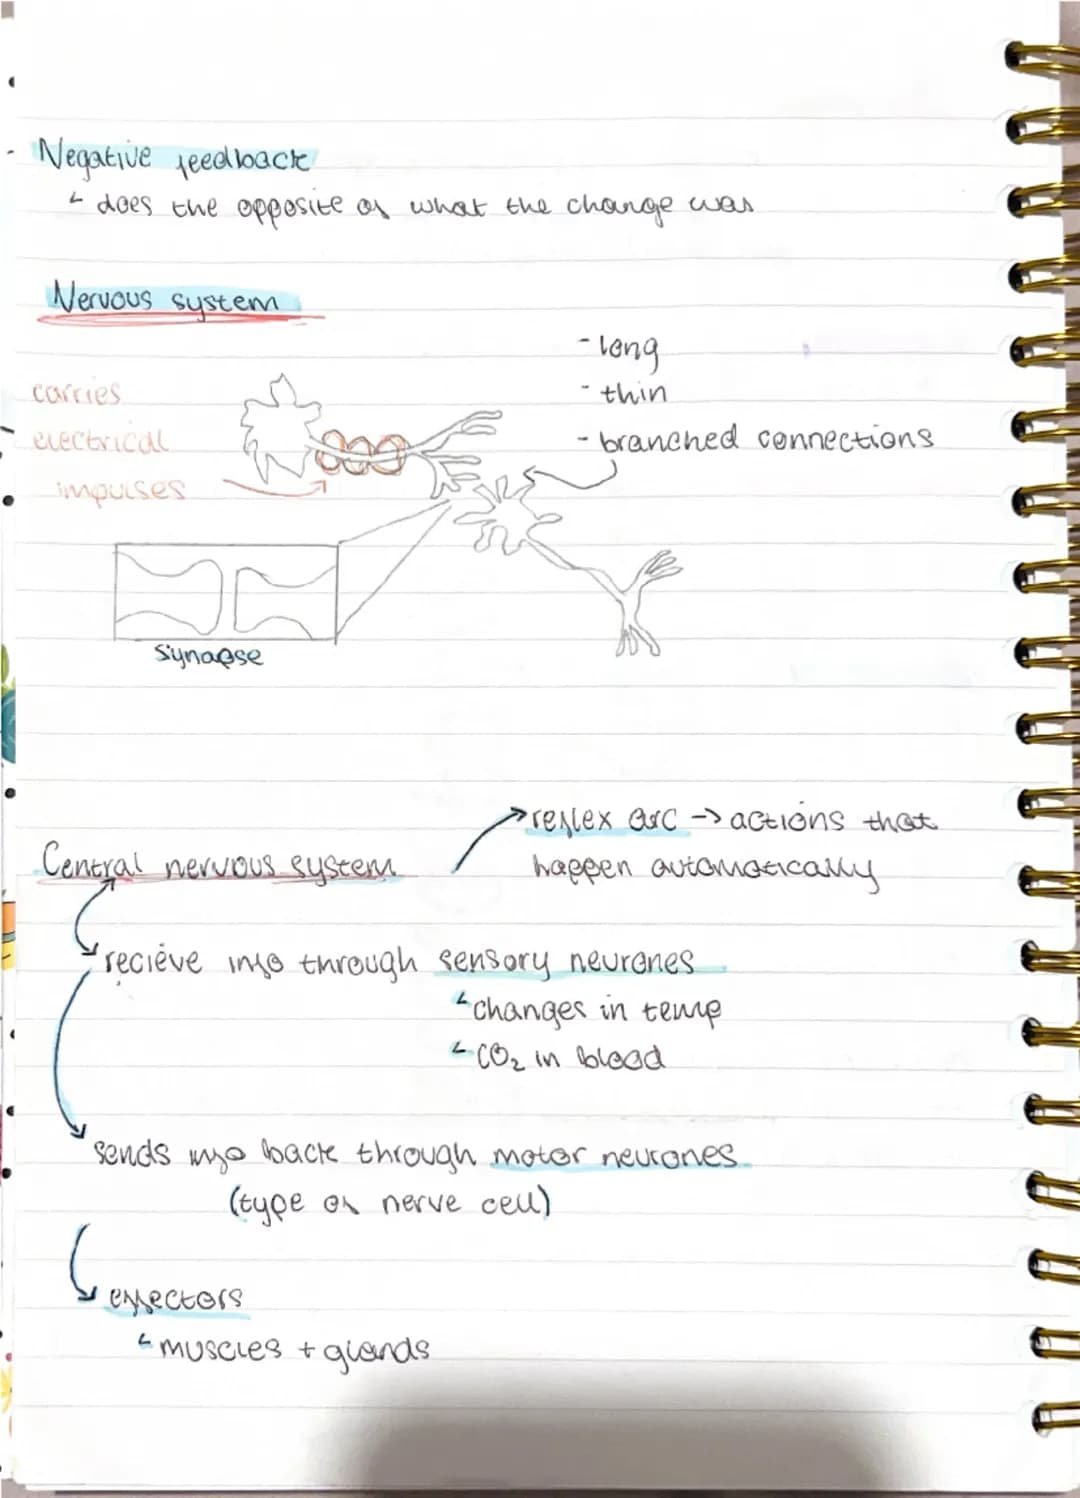 Negative feedback
does the opposite of what the change was
Nervous system
- long
- thin
- branched connections
carries
electrical
impulses
Synapse
Central nervous system
reflex arc -> actions that
happen automatically
recieve info through sensory neurones
changes in temp
CO₂ in blood
sends info back through motor neurones
(type of nerve cell)
effectors
muscles + glands